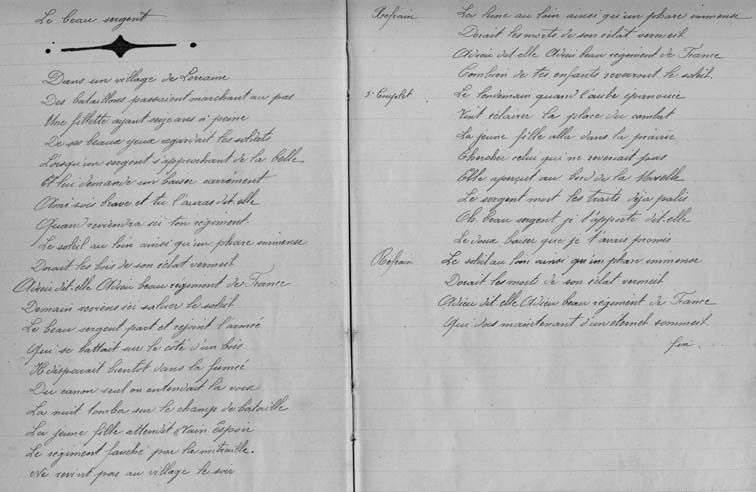 Le beau sergent
Dans un village de Lorraine
Des bataillons passaient marchant au pas
Une fillette ayant seize ans à peine
De ses beaux yeux regardait les soldats
Lorsqu'un sergent s'approchant de la belle
Et lui demande un baiser carrément
Ami sois brave et tu l'auras dit elle
Quand reviendra ici ton régiment.
Le soleil au loin ainsi qu'un phare immense
Dorait les bois de son éclat vermeil
Adieu dit-elle Adieu beau régiment de France
Demain reviens ici saluer le soleil
Le beau sergent part et rejoint l'armée
Qui se battait sur le côté d'un bois
Il disparait bientot dans la fumée
Du canon seul on entendait la voix
La nuit tomba sur le champs de bataille
La jeune fille attendit Vain Espoir
Le régiment fauché par la mitraille.
Ne revint pas au village le soir
Refrain La lune au loin ainsi qu'un phare immense
Dorait les morts de son éclat vermeil
Adieu dit elle Adieu beau régiment de France
Combien de tes enfants reverront le soleil.
3e Couplet Le lendemain quand l'aube épanouie
Vint éclairer la place du combat
La jeune fille alla dans la prairie
Chercher celui qui ne revenait pas
Elle aperçut au bord de la Moselle
Le sergent mort les traits déja palis
Oh beau sergent je t'apporte dit-elle
Le doux baiser que je t'avais promis
Refrain Le soleil au loin ainsi qu'un phare immense
Dorait les morts de son éclat vermeil
Adieu dit elle Adieu beau régiment de France
Qui dors maintenant d'un eternel sommeil.
fin.